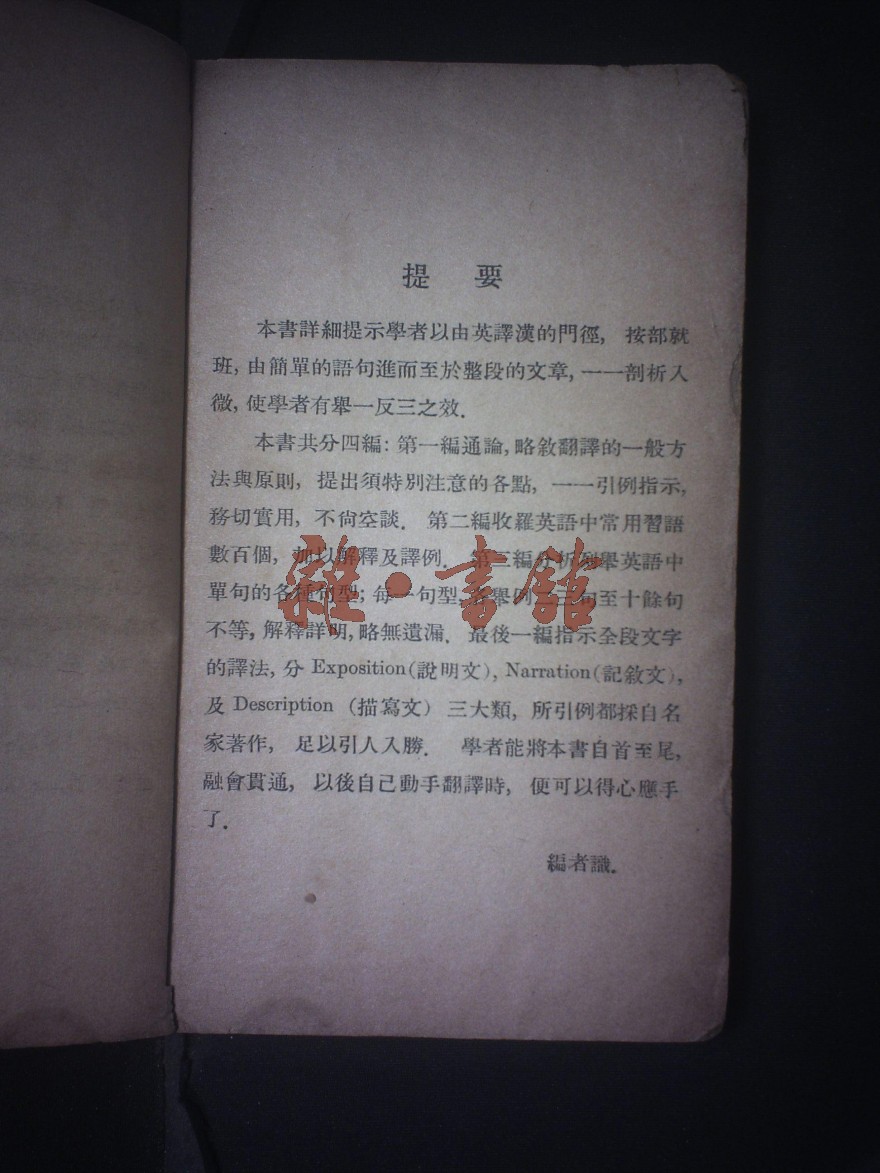 提 要
本書詳細提示學者以由英譯漢的門徑, 按部就
班, 由簡單的語句進而至於整段的文章, 一一剖析入
微, 使學者有舉一反三之效.
本書共分四編: 第一編通論, 略敘翻譯的一般方
法與原則, 提出須特別注意的各點, 一一引例指示,
務切實用, 不尙空談. 第二編收羅英語中常用習語
數百個, 加以解釋及譯例. 第三編分析列舉英語中
單句的各種句型; 每一句型, 各舉例二三句至十餘句
不等, 解釋詳明, 略無遺漏. 最後一編指示全段文字
的譯法, 分 Exposition (說明文), Narration (記敘文),
及 Description (描寫文) 三大類, 所引例都採自名
家著作, 足以引人入勝. 學者能將本書自首至尾,
融會貫通, 以後自己動手翻譯時, 便可以得心應手
了.
編者識.
雜·書館